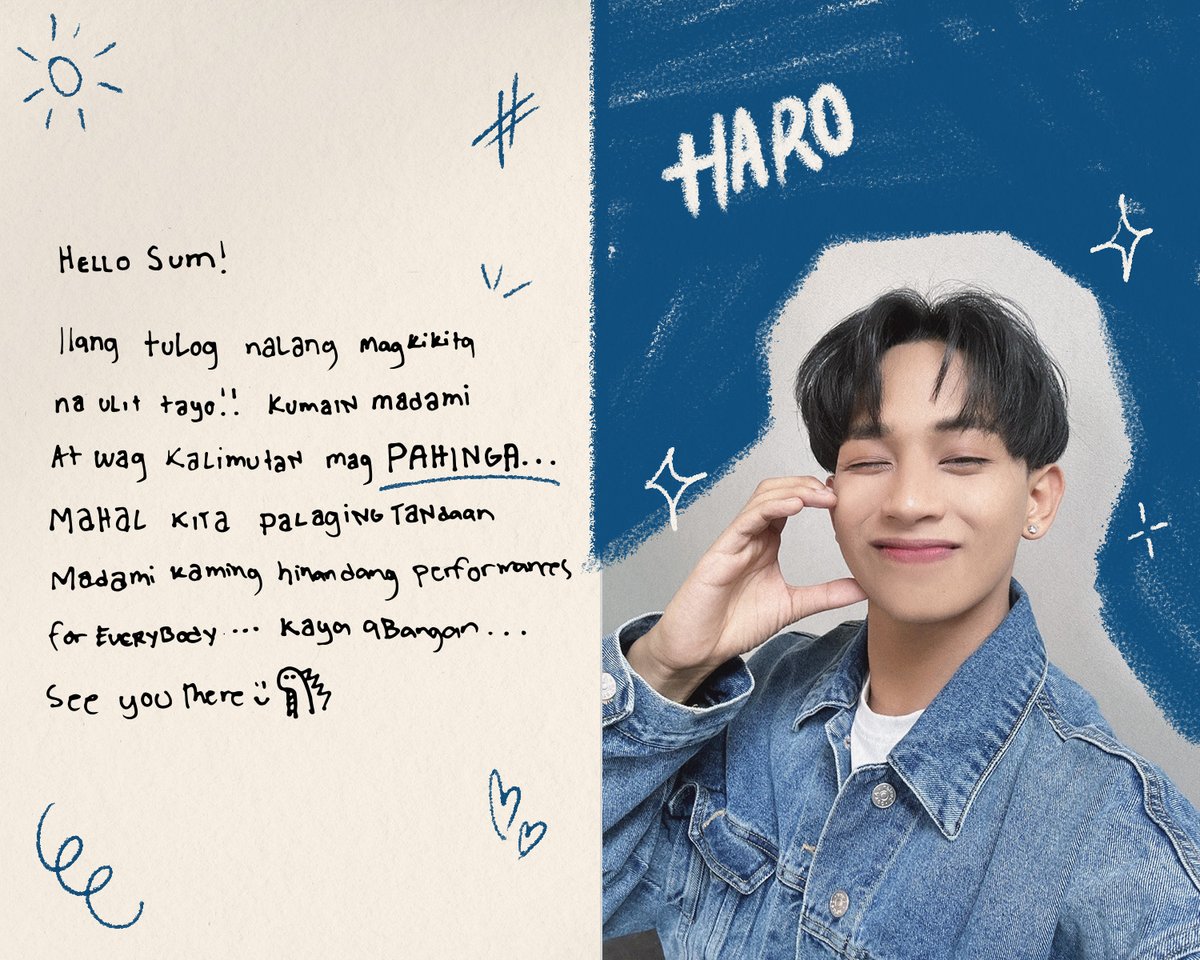 HELLO Sum!
Ilang tulog nalang magkikita
na ulit tayo!! Kumain madami
At wag kalimutan mag PAHINGA...
MAHAL KITA palaging Tandaan
Madami kaming hinandang performances
for EVERYBODY... kaya abangan...
See you there
HARO